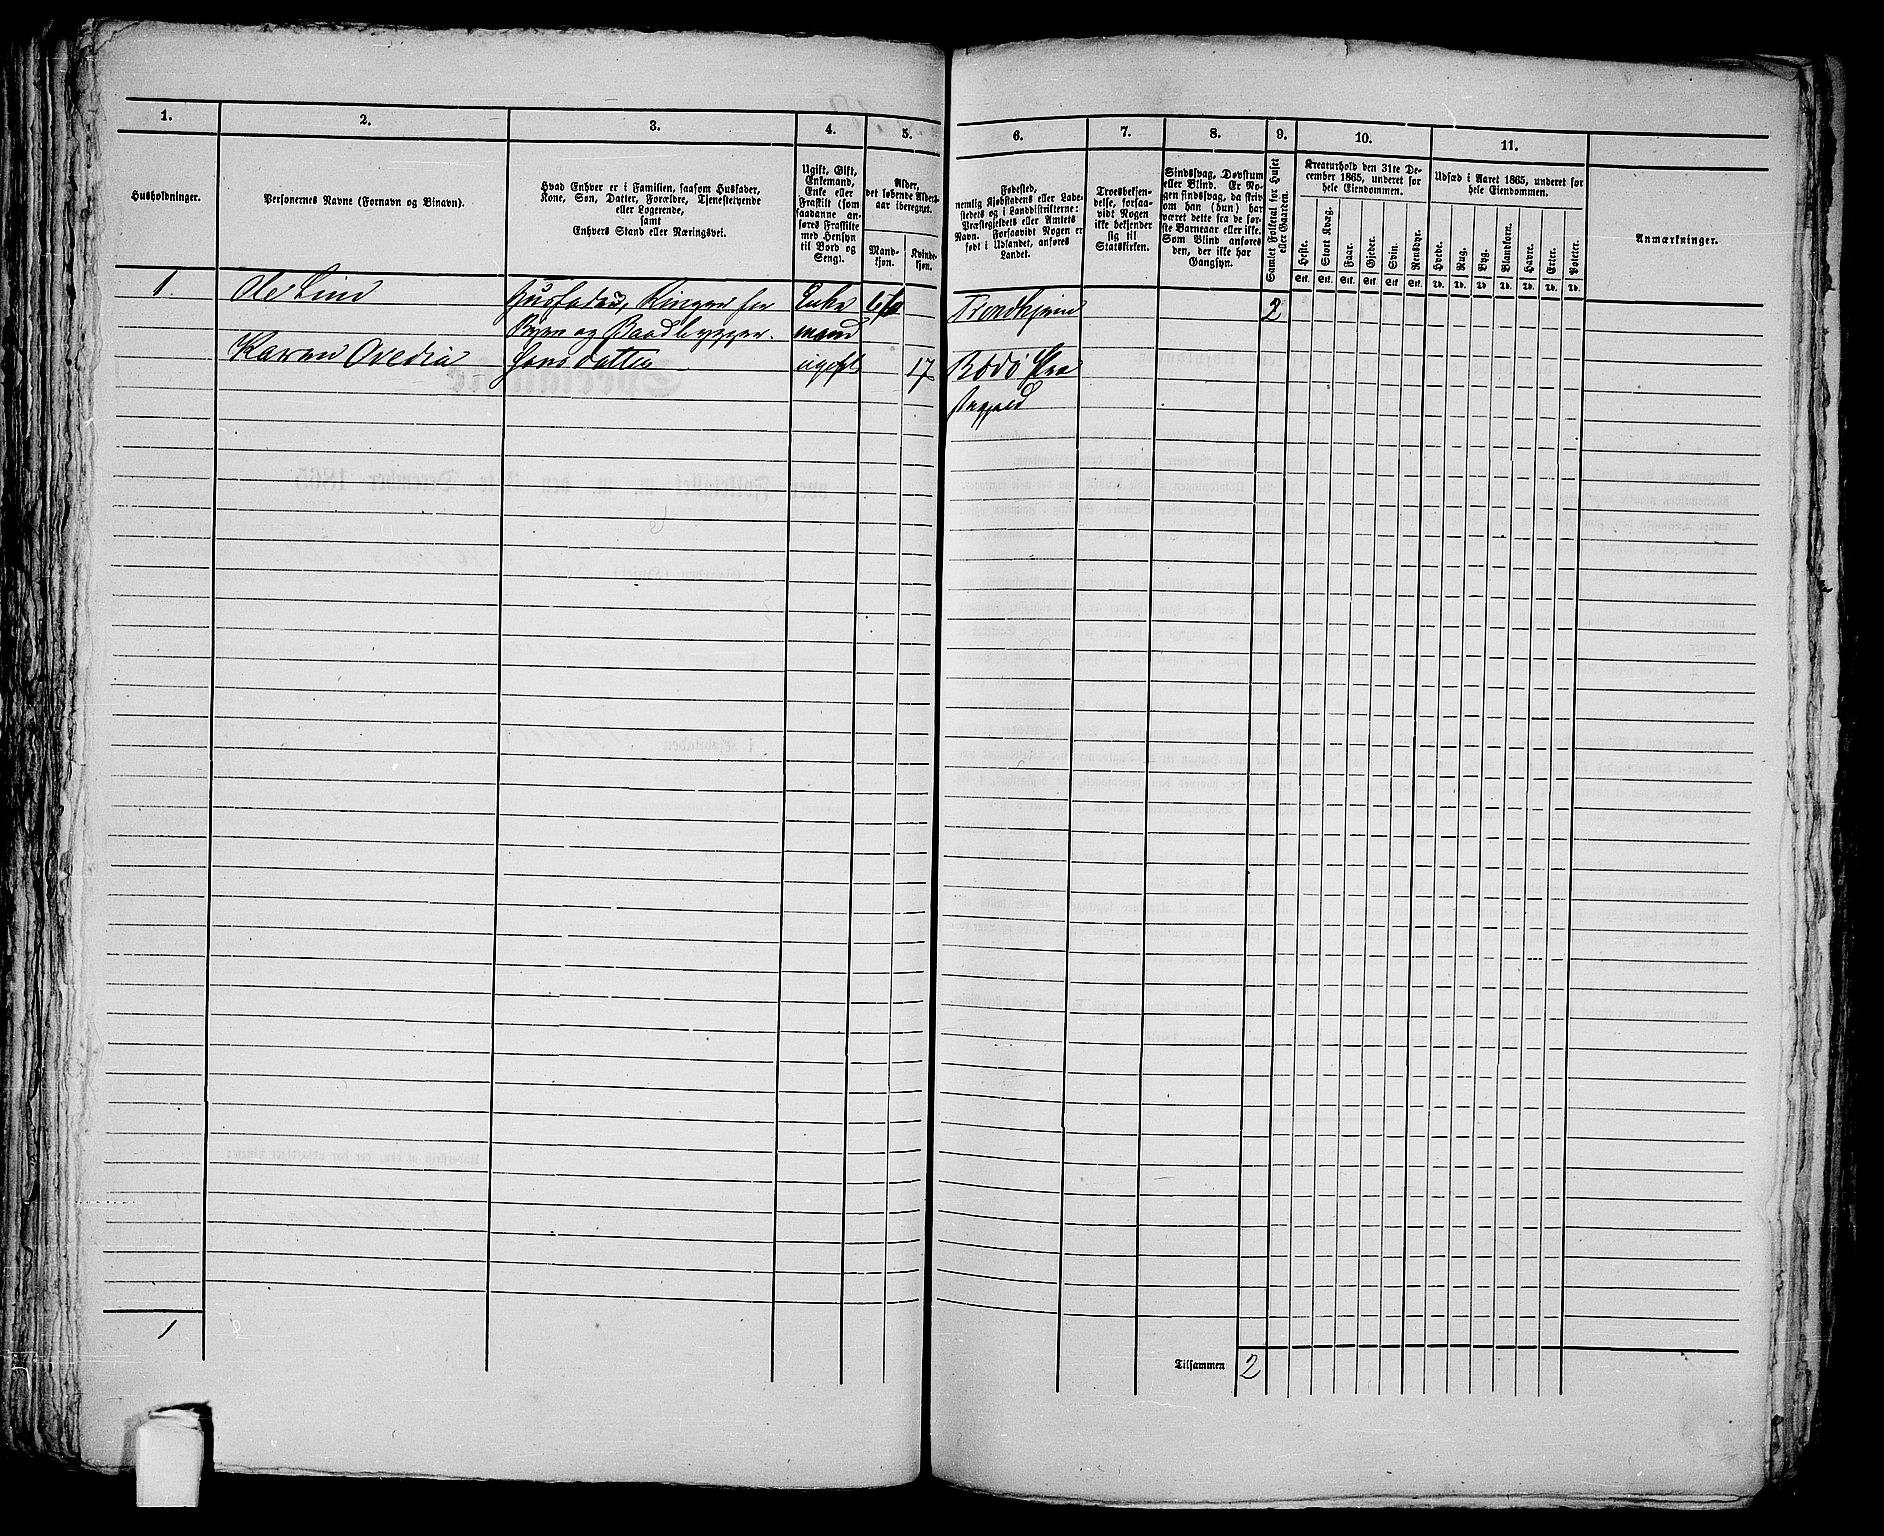 1. 2. 3. 4. 5. 6. 7. 8. 9. 10. 11.
Husholdninger.
Personernes Navne (Fornavn og Binavn).
Hvad Enhver er i Familien, saasom Husfader,
Kone, Søn, Datter, Forældre, Tjenestetyende
eller Logerende,
samt
Enhvers Stand eller Næringsvei.
Ugift, Gift,
Enkemand,
Enke eller
Fraskilt (som
saadanne an-
føres Fraskilte
med Hensyn
til Bord og
Seng).
Alder,
det løbende Alders-
aar iberegnet.
Mand-
kjøn.
Kvinde-
kjøn.
Fødested,
nemlig Kjøbstadens eller Lade-
stedets og i Landdistrikterne:
Præstegjeldets eller Amtets
Navn. Forsaavidt Nogen er
født i Udlandet, anføres
Landet.
Troesbekjen-
delse, forsaa-
vidt Nogen
ikke bekjender
sig til
Statskirken.
Sindssvag, Døvstum
eller Blind. Er No-
gen sindssvag, da skriv
om han (hun) har
været dette fra de før-
ste Barneaar eller ikke.
Som Blind anføres
den, der ikke har
Gangsyn.
Samlet Folketal for Huset
eller Gaarden.
Kreaturhold den 31te De-
cember 1865, underet for
hele Eiendommen.
Heste. Stort Kvæg. Faar. Gjeder. Svin. Rensdyr.
Stk. Stk. Stk. Stk. Stk. Stk.
Udsæd i Aaret 1865, underet for
hele Eiendommen.
Hvede. Rug. Byg. Blandkorn. Havre. Erter. Poteter.
Td. Td. Td. Td. Td. Td. Td.
Anmærkninger.
1. Ole Lind Husfader, Ringer for Enke Trondhjem 2
Byen og Baadbygger. mand
Karen Ovedia Hansdatter ugift 17 Bodø Præ
stegjeld
1
Tilsammen 2